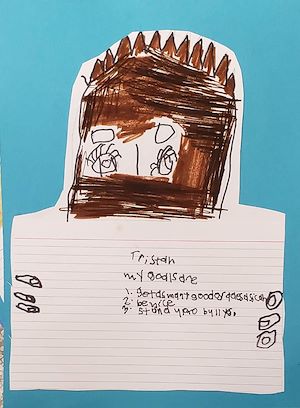 Tristan
my goals are
1. get as many good grades as i can
2. be nice
3. stand up to bullys.